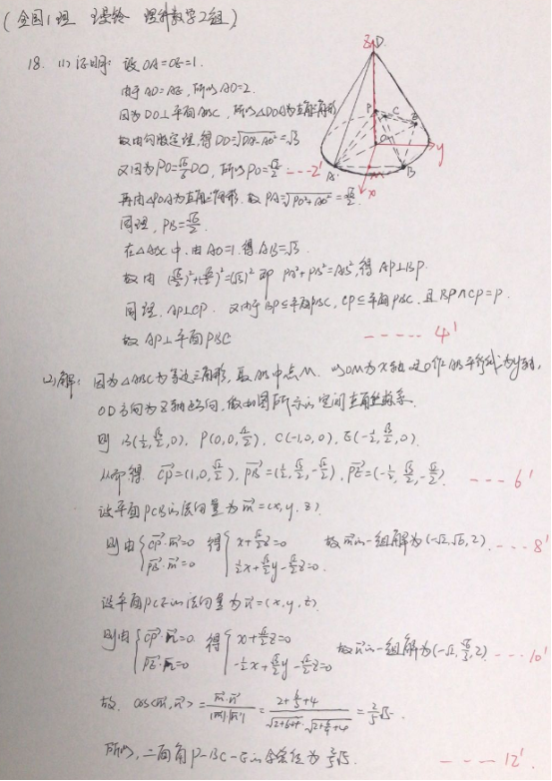 (全国1理 理科数学2组)
18. (1)证明: 设OA=OE=1.
由于AD=AE, 所以AD=2.
因为DO⊥平面ABC, 所以△DOA为直角三角形
故由勾股定理, 得DO=√(DA²-AO²)=√3
又因为PO=√6/6 DO, 所以PO=√2/2 ---2'
再由△POA为直角三角形, 故PA=√(PO²+AO²)=√6/2
同理, PB=√6/2.
在△ABC中, 由AO=1, 得AB=√3.
故由(√6/2)²+(√6/2)²=(√3)² 即 PA²+PB²=AB², 得AP⊥BP.
同理, AP⊥CP. 又由于BP⊆平面PBC, CP⊆平面PBC, 且BP∩CP=P.
故AP⊥平面PBC ----- 4'
(2)解: 因为△ABC为等边三角形, 取AB中点M. 以OM为x轴 过O作AB平行线为y轴,
OD方向为z轴方向, 做如图所示的空间直角坐标系.
则 B(1/2, √3/2, 0), P(0, 0, √2/2), C(-1, 0, 0), E(-1/2, √3/2, 0).
从而得. CP→=(1, 0, √2/2), PB→=(1/2, √3/2, -√2/2), PE→=(-1/2, √3/2, -√2/2). --- 6'
设平面PCB的法向量为m→=(x, y, z)
则由{CP→·m→=0 得 {x+√2/2 z=0 故m→的一组解为(-√2, √6, 2). --- 8'
PB→·m→=0 1/2x+√3/2y-√2/2z=0.
设平面PCE的法向量为n→=(x, y, z)
则由{CP→·n→=0 得 {x+√2/2 z=0 故n→的一组解为(-√2, √6/3, 2) --- 10'
PE→·n→=0 -1/2x+√3/2y-√2/2z=0
故. cos<m→, n→>=m→·n→/|m→||n→|=(2+6/3+4)/(√(2+6+4)·√(2+6/9+4))=2/5√5.
所以, 二面角P-BC-E的余弦值为2/5√5. --- 12'
z
D
P
C
E
O
y
A
M
B
x